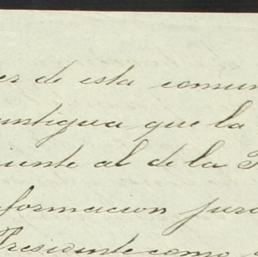 es de esta comun
antigua que la
iente al de la P
formacion jura
Presidente como